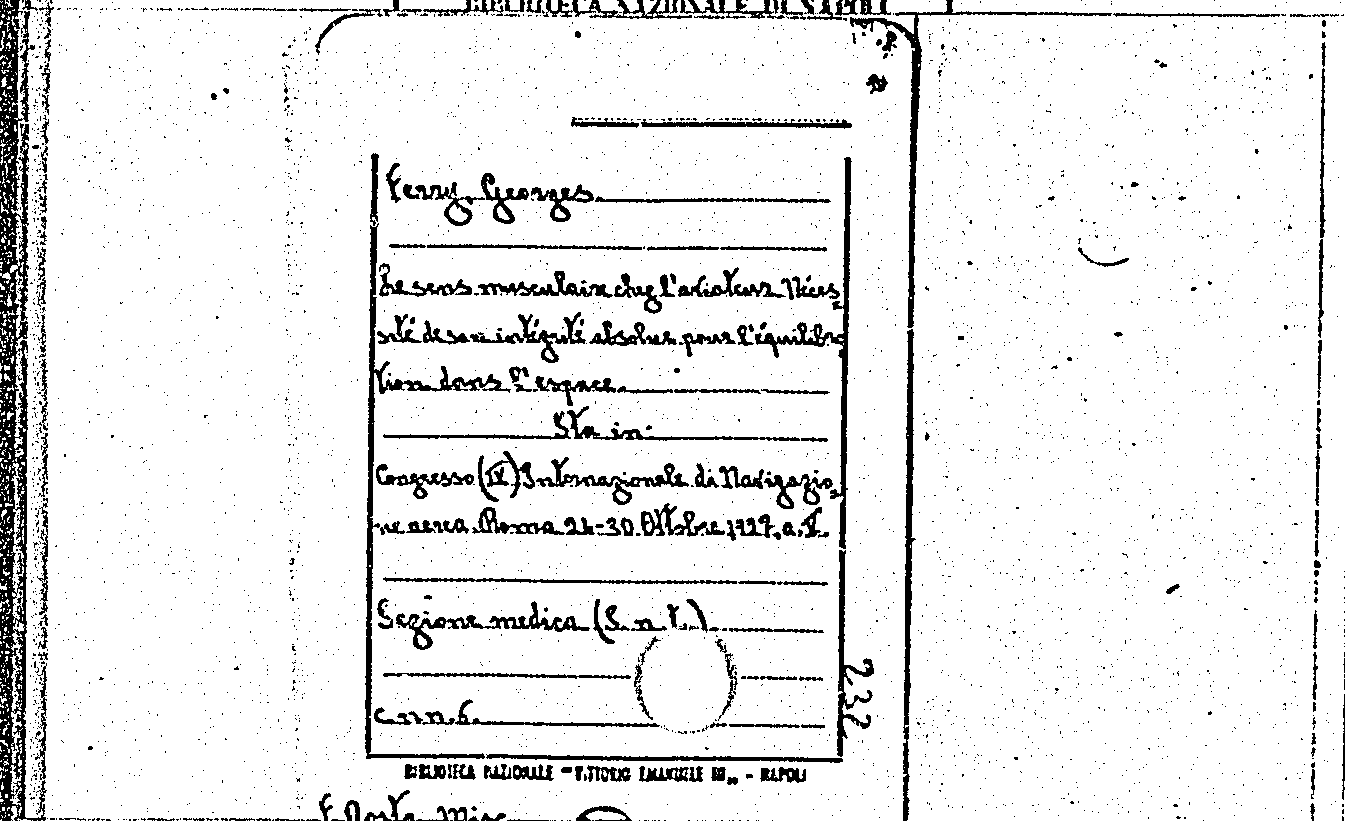 BIBLIOTECA NAZIONALE DI NAPOLI
Ferry, Georges.
Le sens musculaire chez l'aviateur. Néces-
sité de son intégrité absolue pour l'équilibra
tion dans l'espace.
Sta in:
Congresso (IV) Internazionale di Navigazio-
ne aerea. Roma 24-30 Ottobre 1927, a. V.
Sezione medica (S. n. t.)
c. nn. 6.
232
BIBLIOTECA NAZIONALE "VITTORIO EMANUELE III" - NAPOLI
Misc